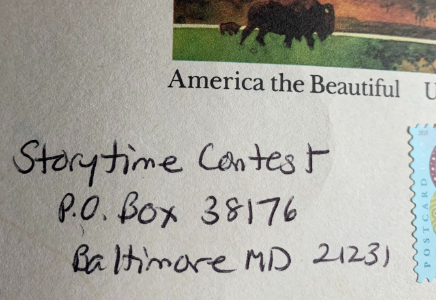 America the Beautiful U
Storytime Contest
P.O. Box 38176
Baltimore MD 21231
POSTCARD